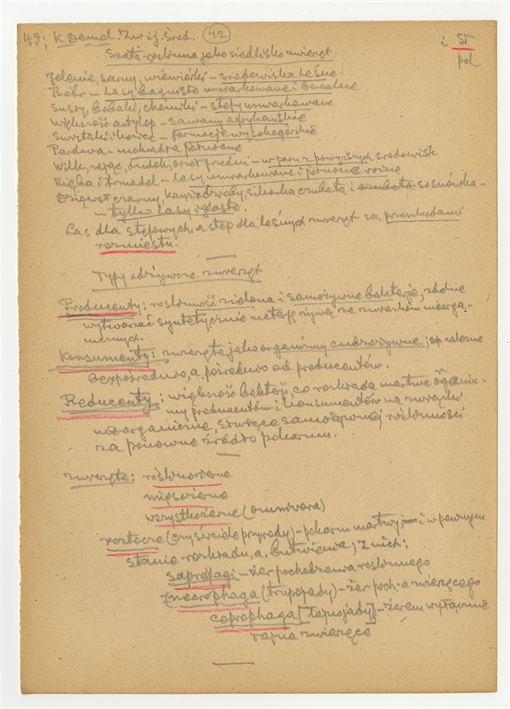 49; K. Demel. Zw. i j. Środ. 12 i ST
pol
Szata roślinna jako siedlisko zwierząt
Jelenie, sarny, wiewiórki – środowiska leśne.
Bóbr – lasy bagniste umiarkowane i borealne
Susły, bobaki, chomiki – stepy umiarkowane
Większość antylop – sawany afrykańskie
Świstaki i kozice – formacje wysokogórskie
Pardwa – mokradła północne
Wilk, zając, dudek, orzeł przedni – w paru z powyższych środowisk
Zięba i trznadel – lasy umiarkowane i północne różne
Dzięcioł czarny, sikorka czubata i sosnówka –
– tylko lasy iglaste.
Las dla stepowych, a step dla leśnych zwierząt są przeszkodami
rozmiestu.
Typy odżywcze zwierząt
Producenty: roślinność zielona i samożywne bakterje, zdolne
wytwarzać syntetycznie materję żywą ze związków nieorga-
nicznych.
Konsumenty: zwierzęta jako organizmy cudzożywne, zależne
bezpośrednio, a pośrednio od producentów.
Reducenty: większość bakterji, co rozkłada martwe organiz-
my producentów i konsumentów na związki
nieorganiczne, służące samożywnej roślinności
za ponowne źródło pokarmu.
Zwierzęta: roślinożerne
mięsożerne
wszystkożerne (omnivora)
roztocze (czyściciele przyrody) – pokarm martwy i w pewnym
stanie rozkładu, a, butwienia; z nich:
saprofagi – żer pochodzenia roślinnego
[necrophaga (trupojady) – żer poch-a zwierzęcego
coprophaga [łajnojady] – żerem wyłącznie
łajna zwierzęce